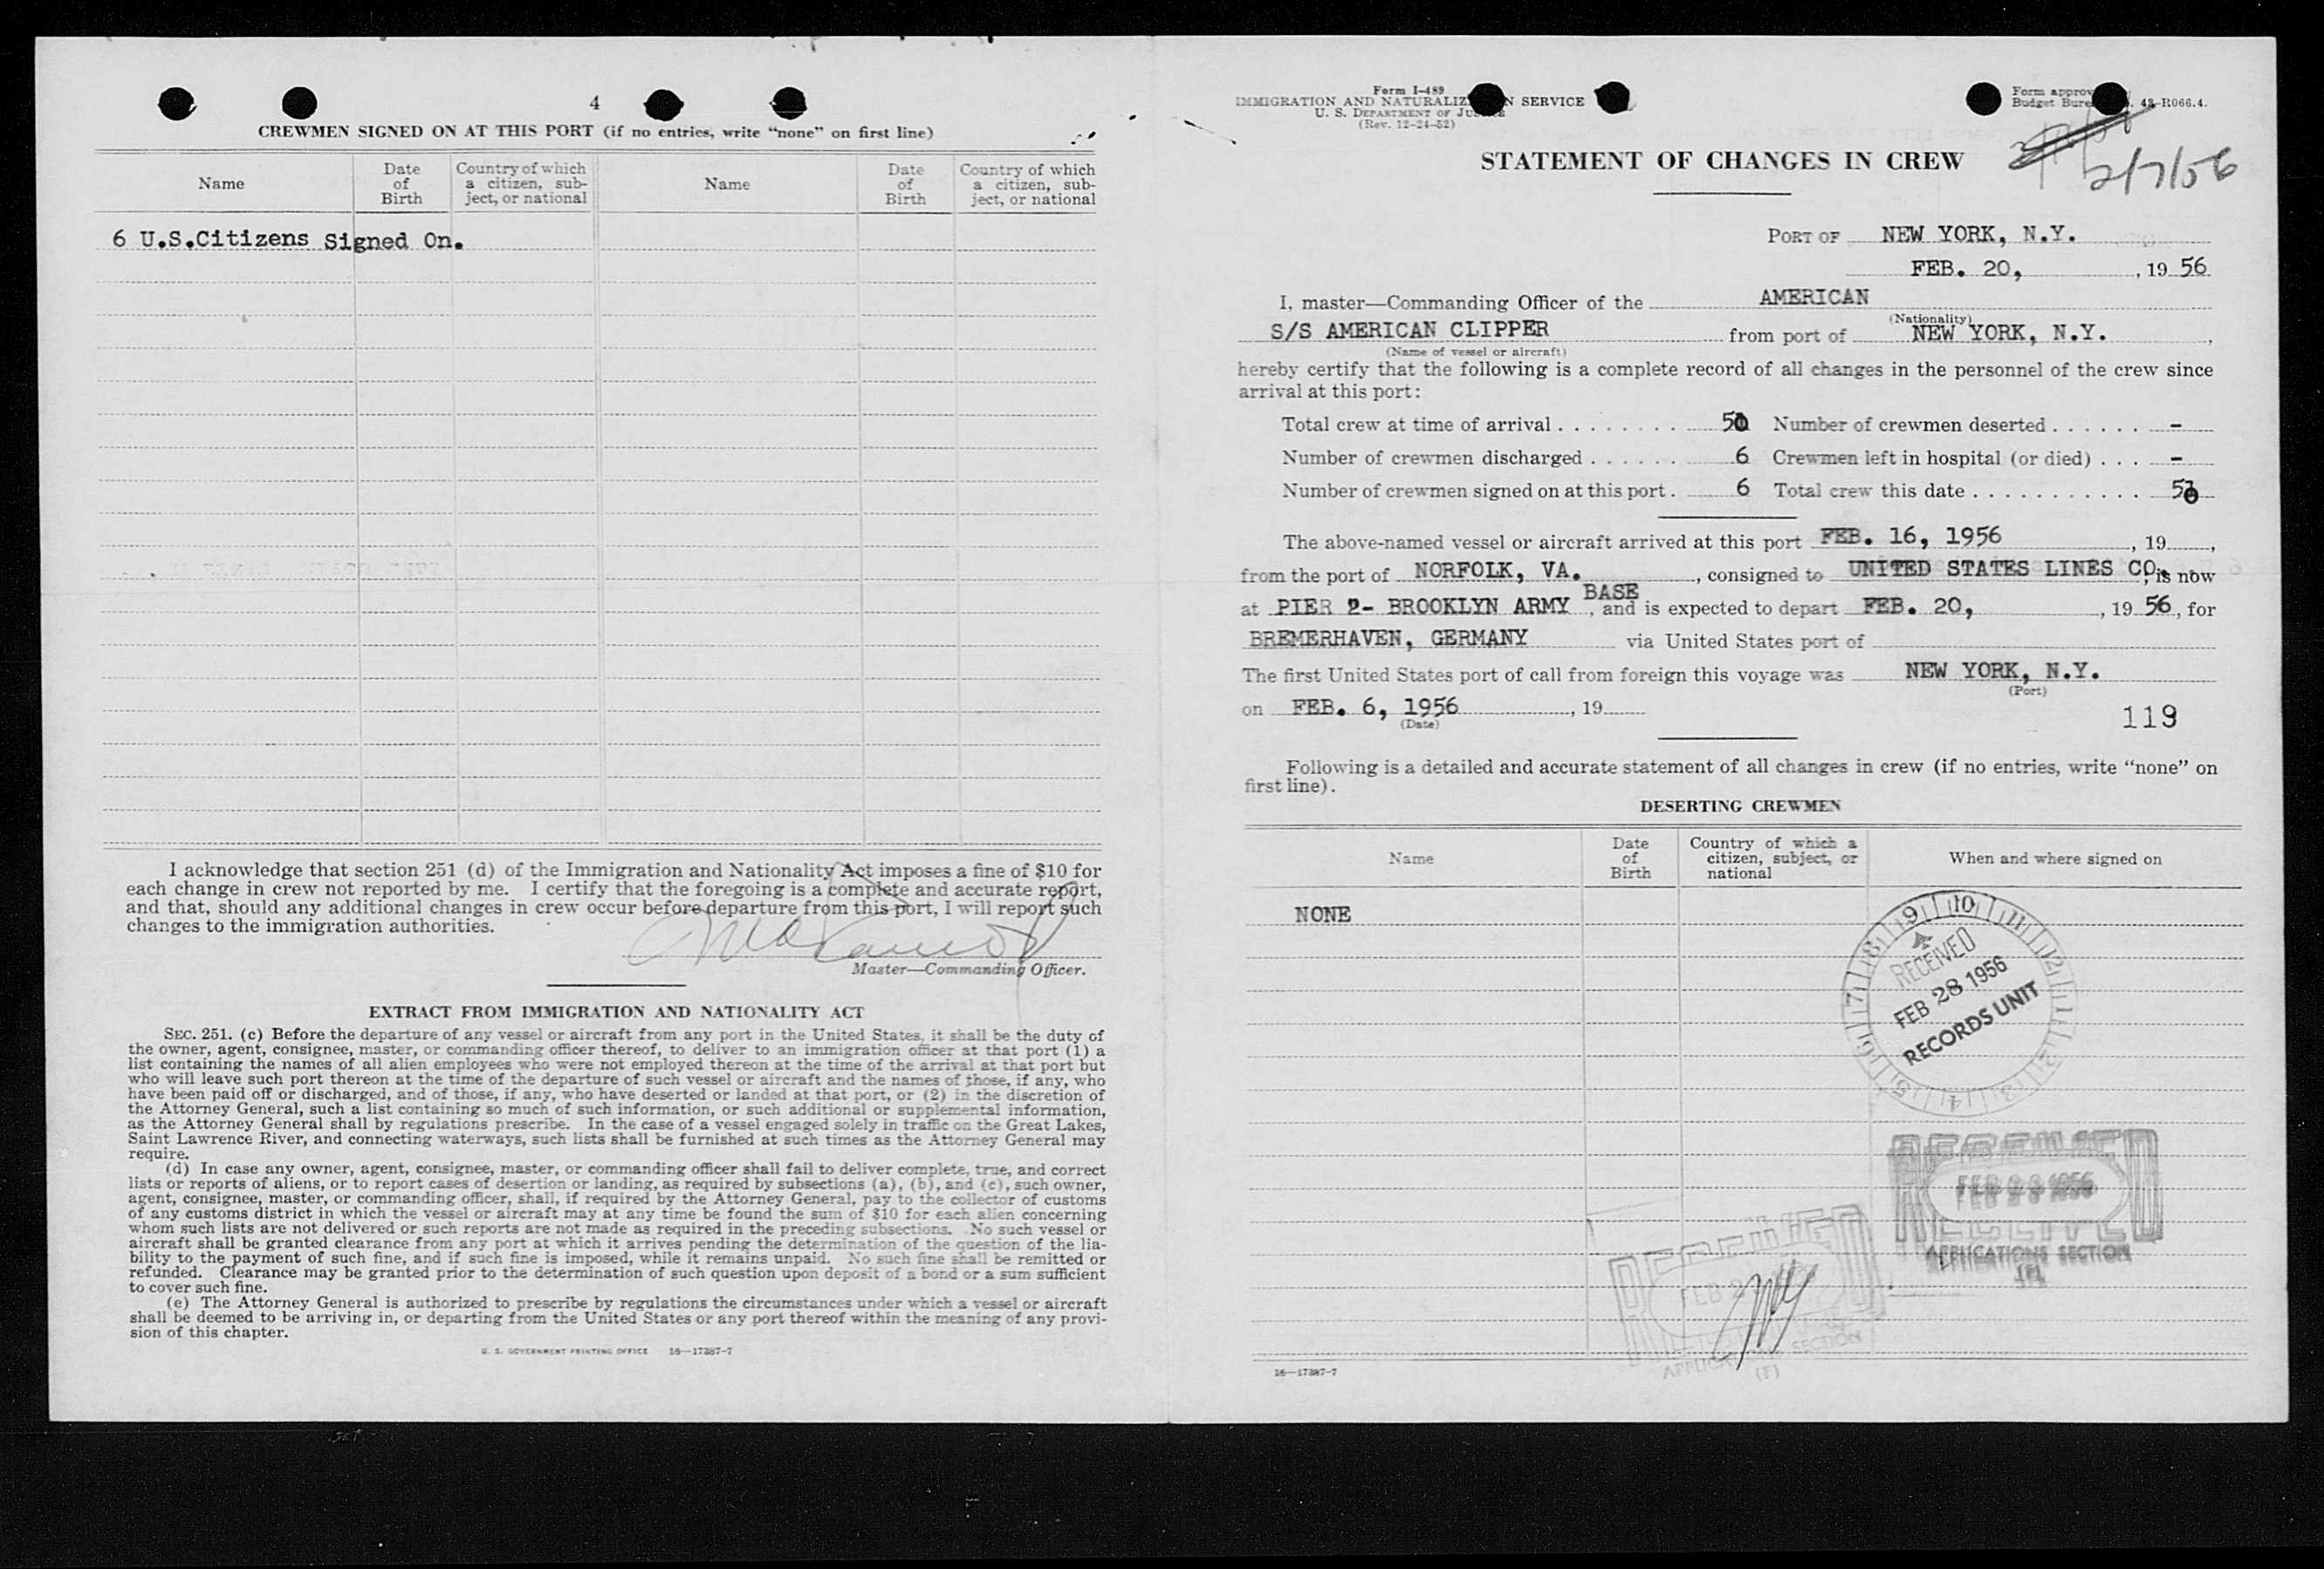 4
CREWMEN SIGNED ON AT THIS PORT (if no entries, write “none” on first line)
Name
Date of Birth
Country of which a citizen, subject, or national
Name
Date of Birth
Country of which a citizen, subject, or national
6 U.S.Citizens Signed On.
I acknowledge that section 251 (d) of the Immigration and Nationality Act imposes a fine of $10 for
each change in crew not reported by me. I certify that the foregoing is a complete and accurate report,
and that, should any additional changes in crew occur before departure from this port, I will report such
changes to the immigration authorities.
Master—Commanding Officer.
EXTRACT FROM IMMIGRATION AND NATIONALITY ACT
SEC. 251. (c) Before the departure of any vessel or aircraft from any port in the United States, it shall be the duty of
the owner, agent, consignee, master, or commanding officer thereof, to deliver to an immigration officer at that port (1) a
list containing the names of all alien employees who were not employed thereon at the time of the arrival at that port but
who will leave such port thereon at the time of the departure of such vessel or aircraft and the names of those, if any, who
have been paid off or discharged, and of those, if any, who have deserted or landed at that port, or (2) in the discretion of
the Attorney General, such a list containing so much of such information, or such additional or supplemental information,
as the Attorney General shall by regulations prescribe. In the case of a vessel engaged solely in traffic on the Great Lakes,
Saint Lawrence River, and connecting waterways, such lists shall be furnished at such times as the Attorney General may
require.
(d) In case any owner, agent, consignee, master, or commanding officer shall fail to deliver complete, true, and correct
lists or reports of aliens, or to report cases of desertion or landing, as required by subsections (a), (b), and (c), such owner,
agent, consignee, master, or commanding officer, shall, if required by the Attorney General, pay to the collector of customs
of any customs district in which the vessel or aircraft may at any time be found the sum of $10 for each alien concerning
whom such lists are not delivered or such reports are not made as required in the preceding subsections. No such vessel or
aircraft shall be granted clearance from any port at which it arrives pending the determination of the question of the lia-
bility to the payment of such fine, and if such fine is imposed, while it remains unpaid. No such fine shall be remitted or
refunded. Clearance may be granted prior to the determination of such question upon deposit of a bond or a sum sufficient
to cover such fine.
(e) The Attorney General is authorized to prescribe by regulations the circumstances under which a vessel or aircraft
shall be deemed to be arriving in, or departing from the United States or any port thereof within the meaning of any provi-
sion of this chapter.
U. S. GOVERNMENT PRINTING OFFICE 16—17387-7
Form I-489
IMMIGRATION AND NATURALIZ N SERVICE
U. S. DEPARTMENT OF JUSTICE
(Rev. 12-24-52)
Form approv
Budget Bure . 43-R066.4.
STATEMENT OF CHANGES IN CREW
2/7/56
PORT OF NEW YORK, N.Y.
FEB. 20, , 19 56
I, master—Commanding Officer of the AMERICAN
(Nationality)
S/S AMERICAN CLIPPER from port of NEW YORK, N.Y. ,
(Name of vessel or aircraft)
hereby certify that the following is a complete record of all changes in the personnel of the crew since
arrival at this port:
Total crew at time of arrival . . . . . . . . 50 Number of crewmen deserted . . . . . . -
Number of crewmen discharged . . . . . . 6 Crewmen left in hospital (or died) . . . -
Number of crewmen signed on at this port . 6 Total crew this date . . . . . . . . . . . 50
The above-named vessel or aircraft arrived at this port FEB. 16, 1956 , 19 ,
from the port of NORFOLK, VA. , consigned to UNITED STATES LINES CO. , is now
at PIER 2- BROOKLYN ARMY BASE , and is expected to depart FEB. 20, , 19 56 , for
BREMERHAVEN, GERMANY via United States port of
The first United States port of call from foreign this voyage was NEW YORK, N.Y.
(Port)
on FEB. 6, 1956 , 19
(Date)
119
Following is a detailed and accurate statement of all changes in crew (if no entries, write “none” on
first line).
DESERTING CREWMEN
Name
Date of Birth
Country of which a citizen, subject, or national
When and where signed on
NONE
9 10 11 12 1 2 3 4 5 6 7 8
RECEIVED
FEB 28 1956
RECORDS UNIT
RECEIVED
APPLICATIONS SECTION
RECEIVED
FEB 2
SECTION
16—17387-7